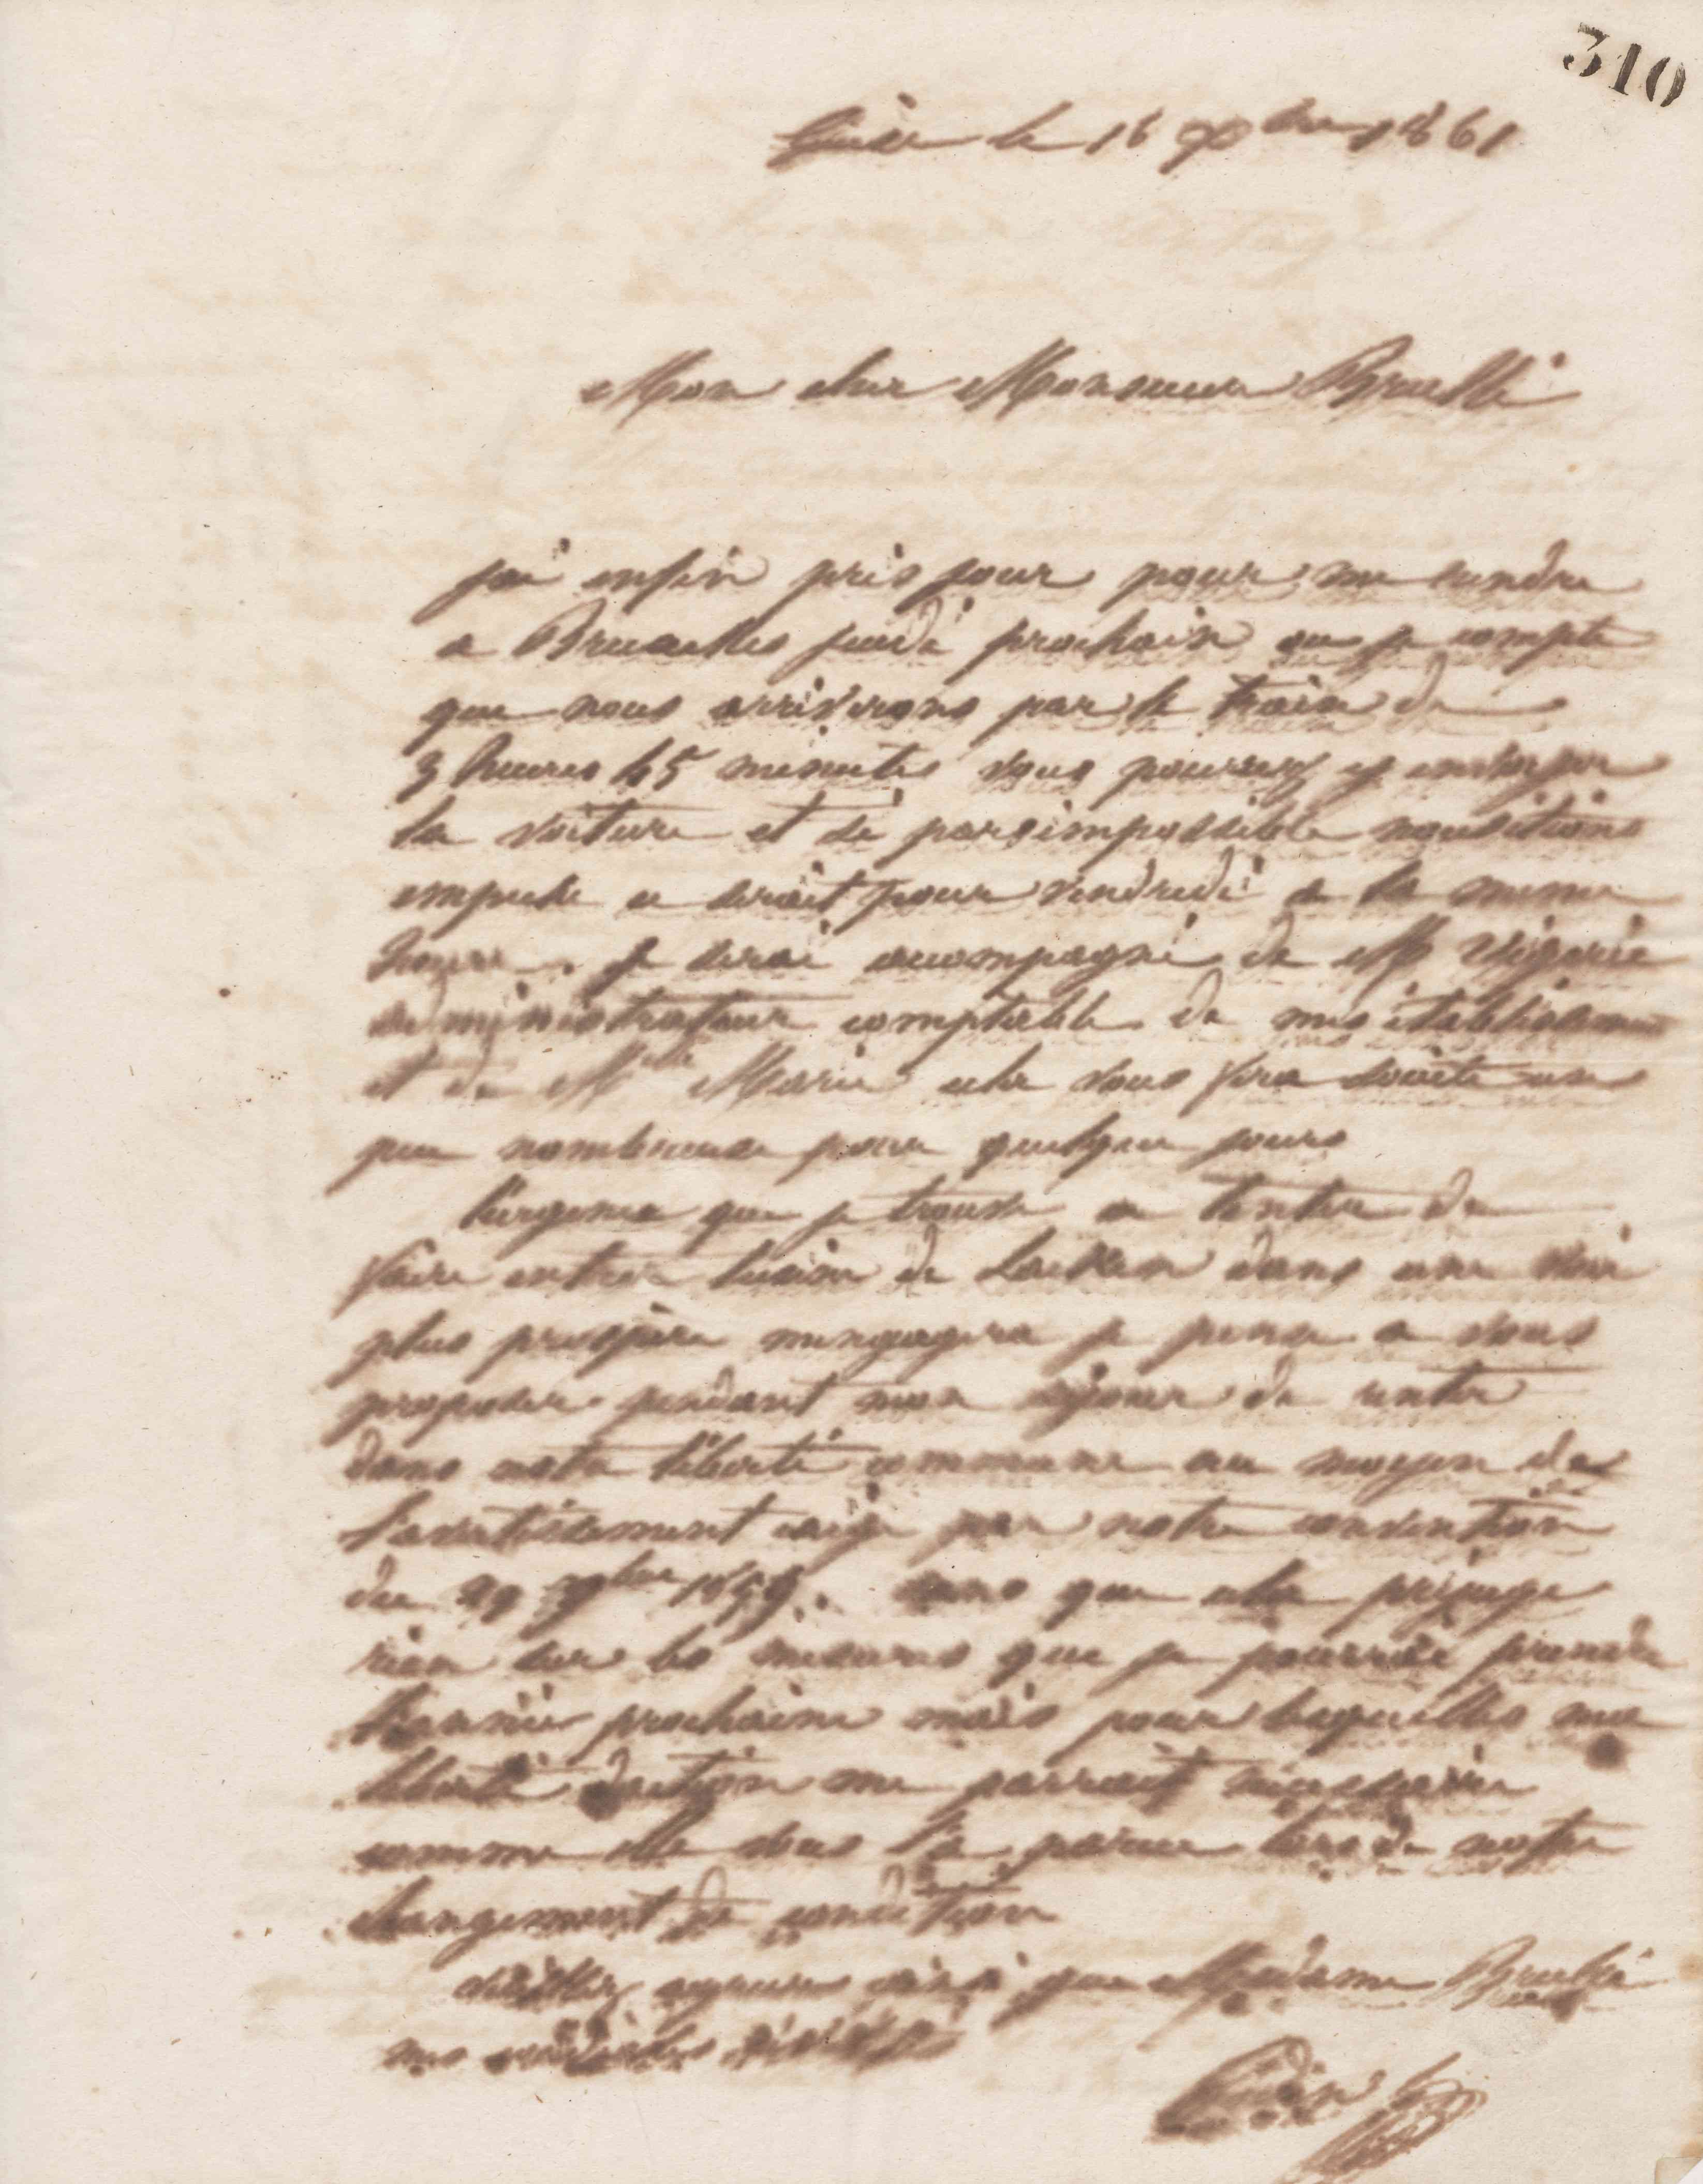 310
Guise le 16 Xbre 1861
Mon cher Monsieur Brullé
j'ai enfin pris jour pour me rendre
a Bruxelles jeudi prochain ou je compte
que nous arriverons par le train de
3 heures 45 minutes vous pourrez y envoyer
la voiture et si par impossible nous étions
empeché ce serait pour vendredi a la meme
heure. je serai accompagné de Mr Vigerie
administrateur comptable de mes établissements
et de Mlle Marie cela vous fera société un
peu nombreuse pour quelque jours
l'urgence que je trouve a tenter de
faire entrer l'usine de Laeken dans une voie
plus prospère m'engagera je pense a vous
proposer pendant mon séjour de rentrer
dans notre liberté commune au moyen de
l'avertissement exigé par notre convention
du 29 9bre 1859. sans que cela préjuge
rien sur les mesures que je pourrai prendre
l'année prochaine mais pour lesquelles ma
liberté d'action me parrait nécessaire
comme elle vous l'a parue lors de notre
changement de condition
veuillez agréer ainsi que Madame Brullé
mes civilités
Godin